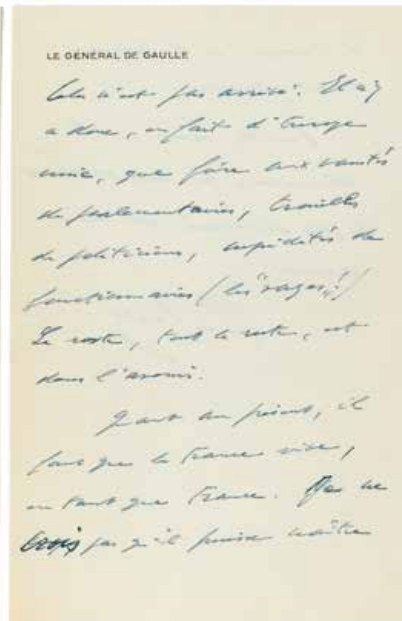 LE GÉNÉRAL DE GAULLE
Cela n'est pas arrivé. Il n'y
a donc, en fait d'Europe
unie, que foire aux vanités
de parlementaires, trouilles
de politiciens, cupidités de
fonctionnaires (les "sages"!)
Le reste, tout le reste, est
dans l'avenir.
Quant au présent, il
faut que la France vive,
en tant que France. Je ne
crois pas qu'il puisse naître